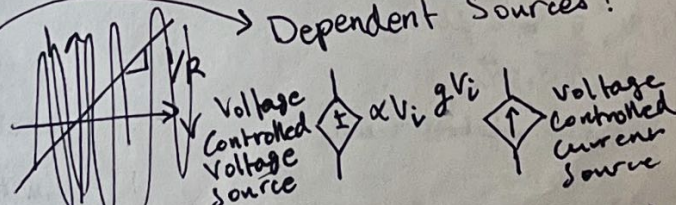 Dependent Sources:
1/R
V
Voltage
Controlled
Voltage
Source
±
αVi
gVi
Voltage
Controlled
Current
Source